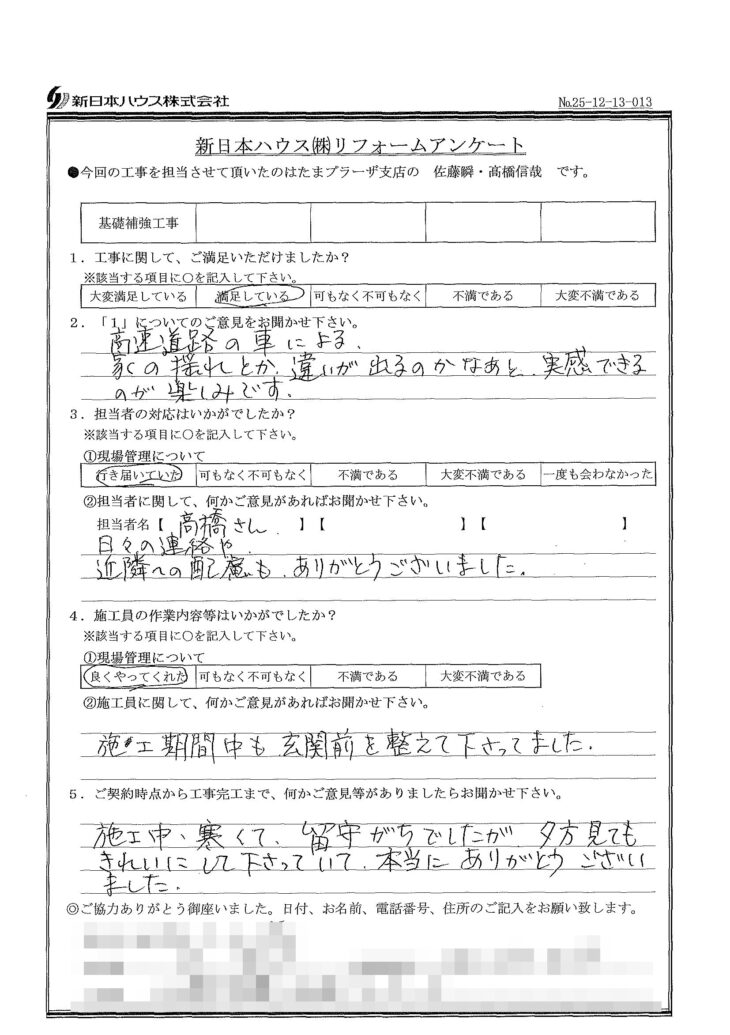 新日本ハウス株式会社
№25-12-13-013
新日本ハウス㈱リフォームアンケート
●今回の工事を担当させて頂いたのはたまプラーザ支店の 佐藤瞬・髙橋信哉 です。
基礎補強工事
1．工事に関して、ご満足いただけましたか？
※該当する項目に○を記入して下さい。
大変満足している 満足している 可もなく不可もなく 不満である 大変不満である
2．「1」についてのご意見をお聞かせ下さい。
高速道路の車による、
家の揺れとか、違いが出るのかなあと、実感できる
のが楽しみです。
3．担当者の対応はいかがでしたか？
※該当する項目に○を記入して下さい。
①現場管理について
行き届いていた 可もなく不可もなく 不満である 大変不満である 一度も会わなかった
②担当者に関して、何かご意見があればお聞かせ下さい。
担当者名【 高橋さん 】【 】【 】
日々の連絡や、
近隣への配慮も、ありがとうございました。
4．施工員の作業内容等はいかがでしたか？
※該当する項目に○を記入して下さい。
①現場管理について
良くやってくれた 可もなく不可もなく 不満である 大変不満である
②施工員に関して、何かご意見があればお聞かせ下さい。
施工期間中も玄関前を整えて下さってました。
5．ご契約時点から工事完工まで、何かご意見等がありましたらお聞かせ下さい。
施工中、寒くて、留守がちでしたが、夕方見ても
きれいにして下さっていて、本当にありがとうござい
ました。
◎ご協力ありがとう御座いました。日付、お名前、電話番号、住所のご記入をお願い致します。